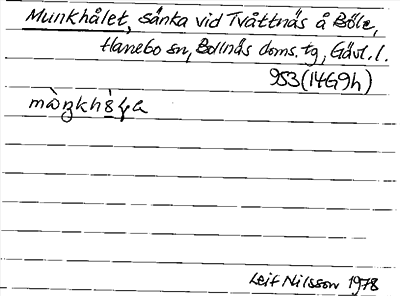 Munkhålet, sänka vid Tvåttnäs å Böle,
Hanebo sn, Bollnäs doms. tg, Gävl. l.
953 (14G9h)
Leif Nilsson 1978